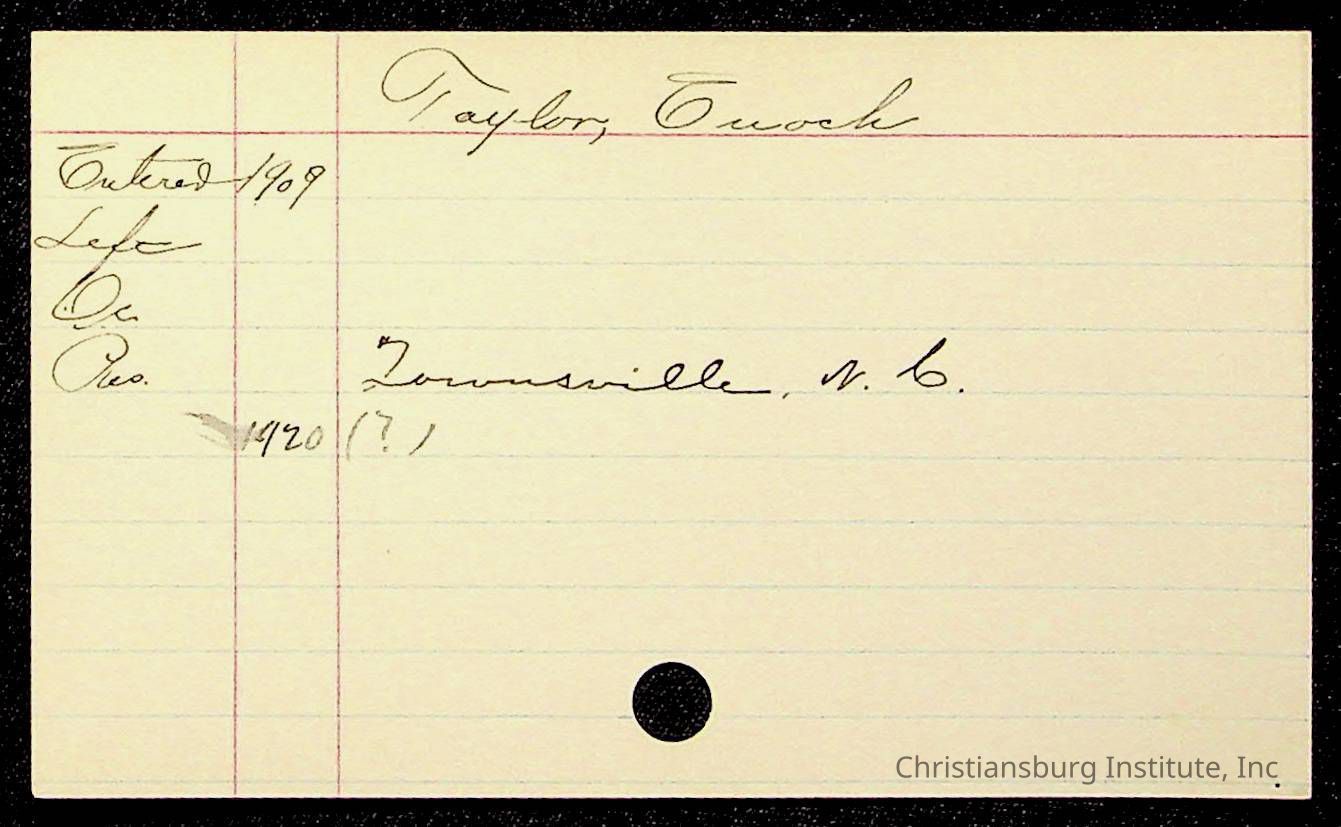 Taylor, Enoch
Entered 1909
Left
Oc
Res. Townsville, N. C.
1920 (?)
Christiansburg Institute, Inc